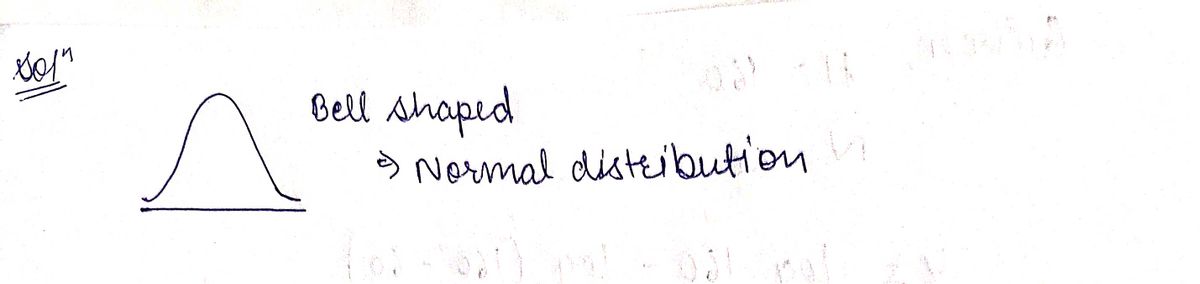 Solⁿ
Bell shaped
⇒ Normal distribution